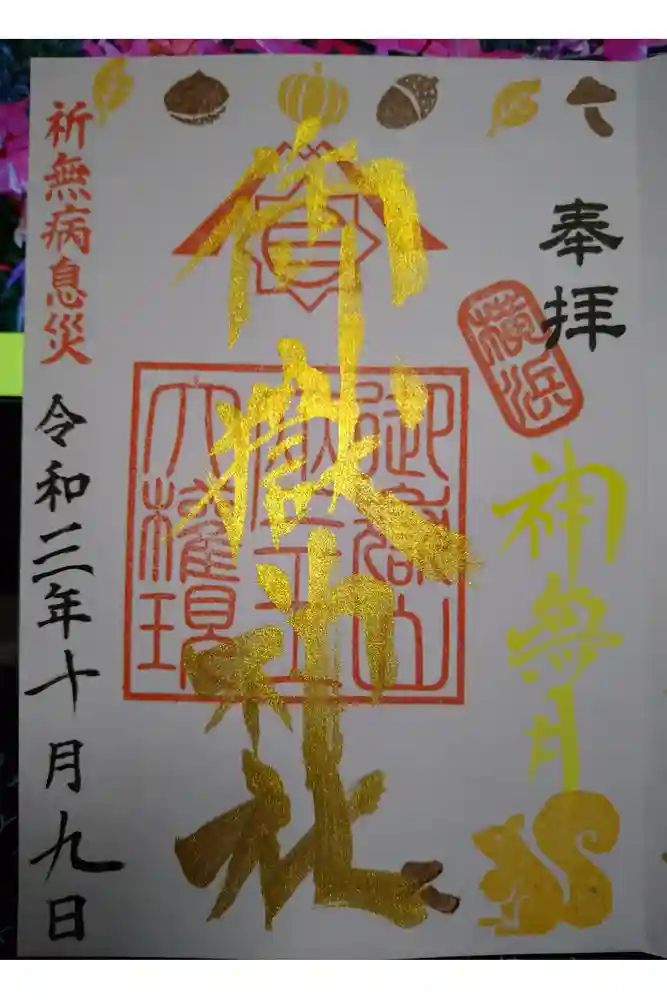 奉拝
横浜
神無月
御嶽神社
御嶽山
大權現
祈無病息災
令和三年十月九日